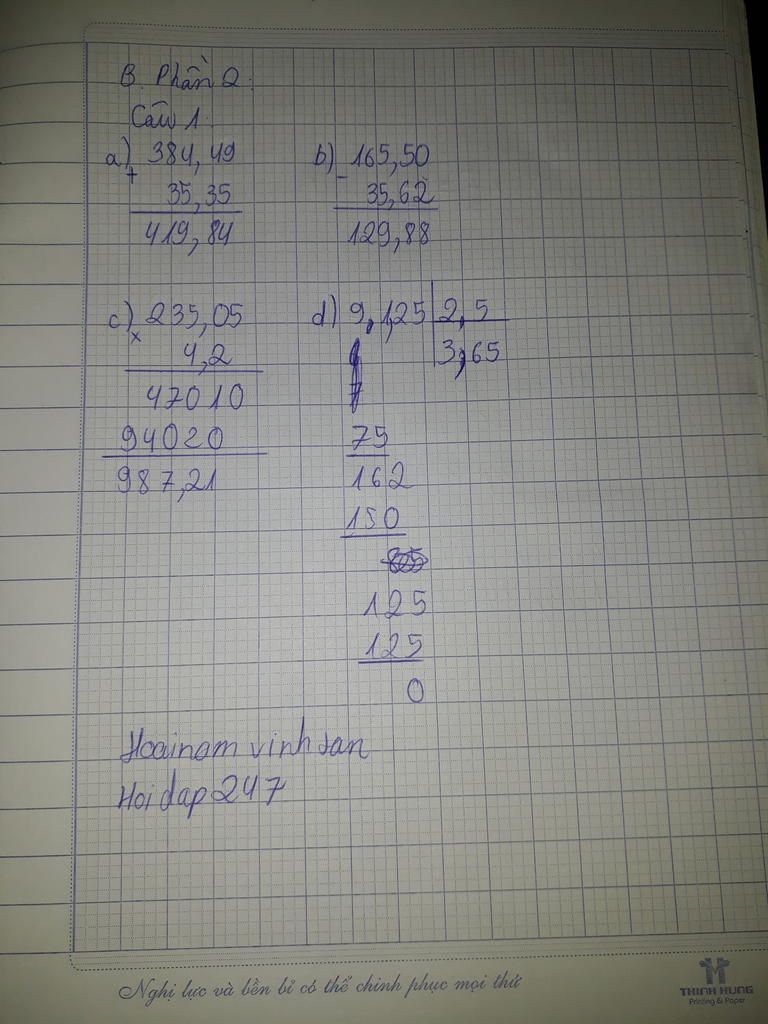 B. Phần 2:
Câu 1:
a) 384,49
+
35,35
419,84
b) 165,50
-
35,62
129,88
c) 235,05
x
4,2
47010
94020
987,21
d) 9,1,25 2,5
3,65
75
162
150
125
125
0
Hoainam vinhsan
Hoidap247
Nghị lực và bền bỉ có thể chinh phục mọi thứ
THINH HUNG
Printing & Paper